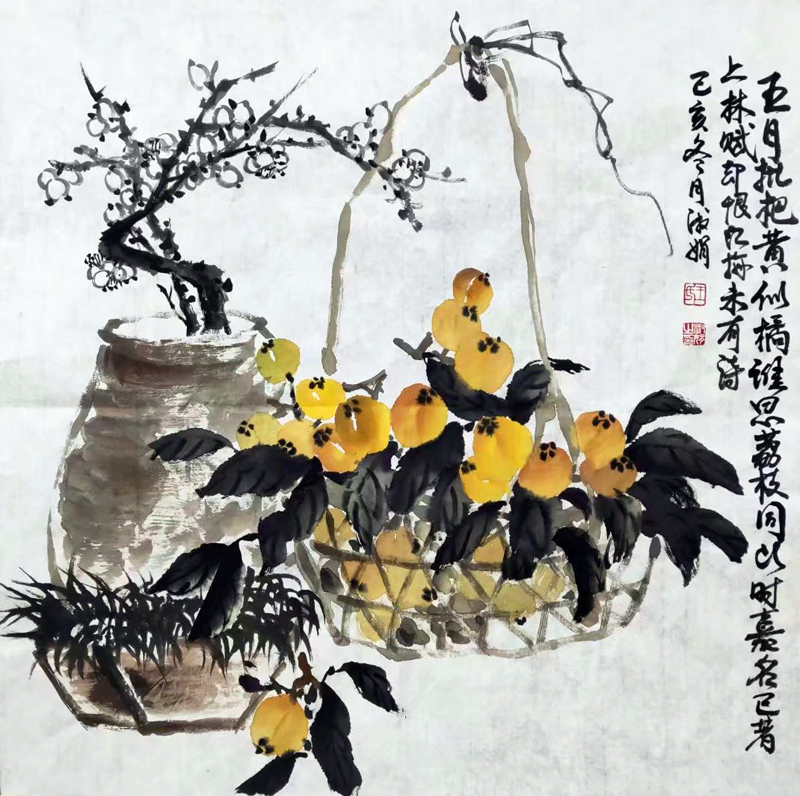 五月枇杷黄似橘谁思荔枝同此时嘉名已著
上林赋却恨红梅未有诗
己亥冬月淑娟